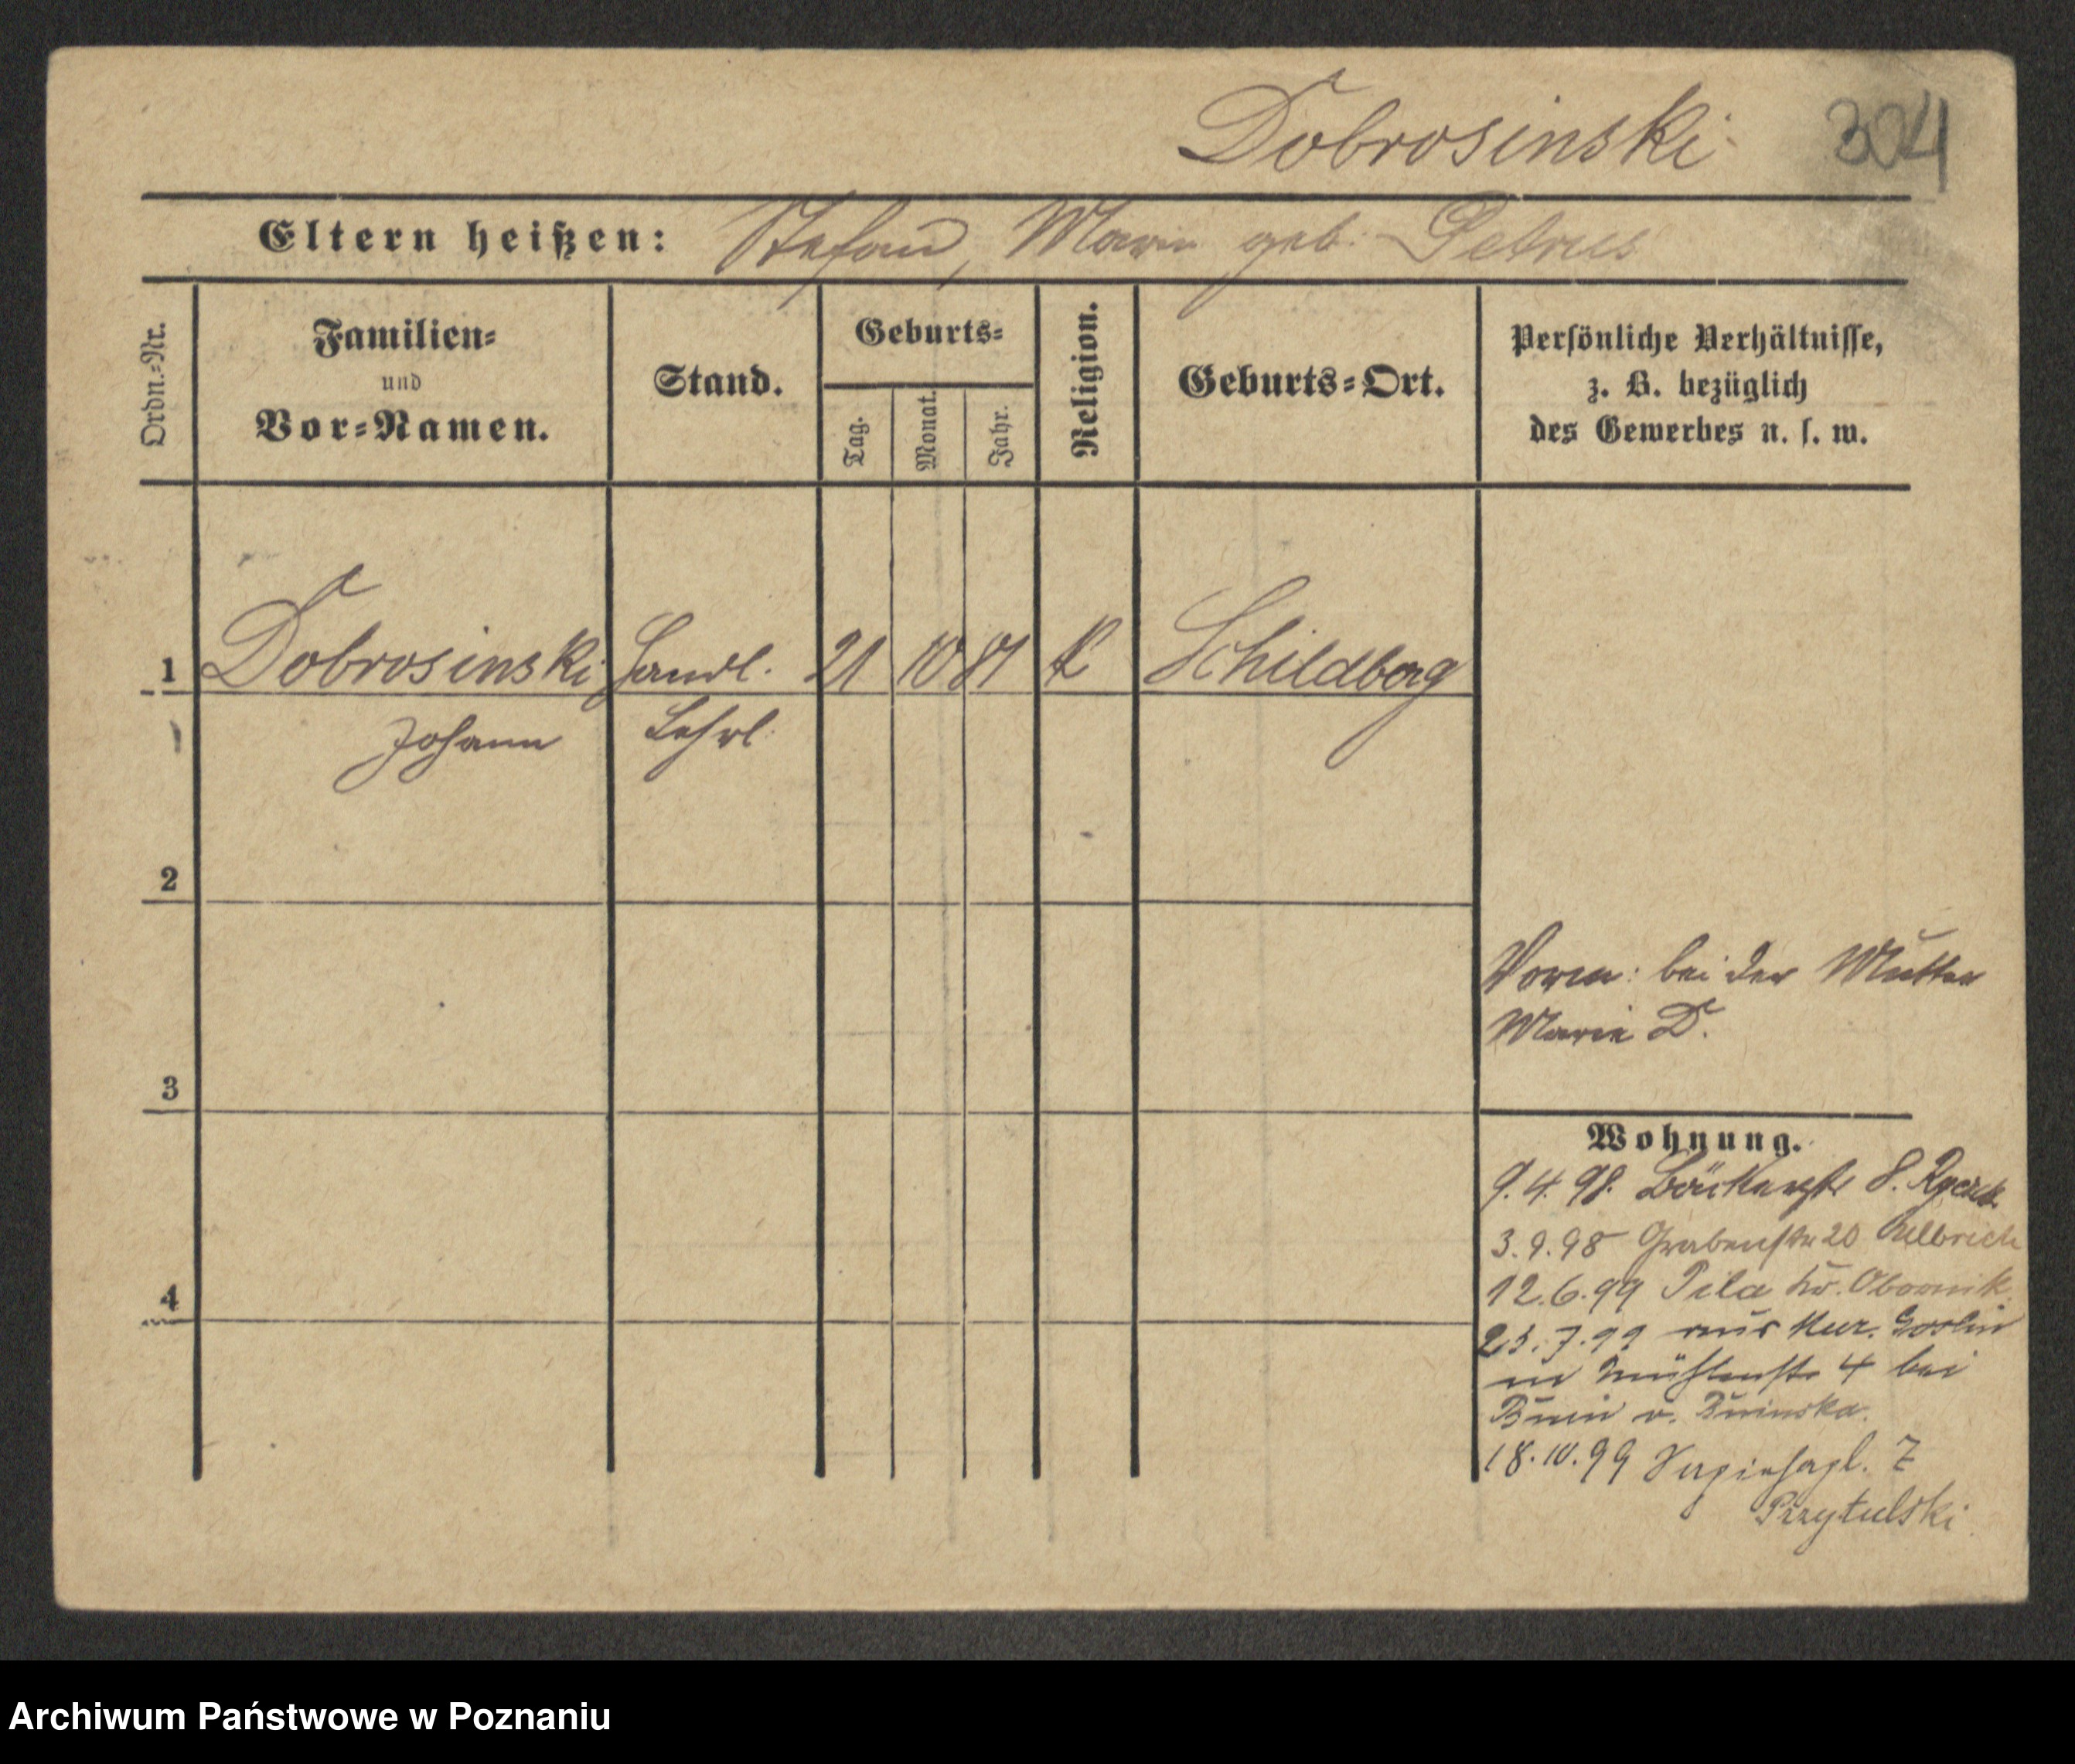 Dobrosinski 304
Eltern heißen: Stefan, Marie geb. Petrus
Ordn.-Nr.
Familien-
und
Vor-Namen.
Stand.
Geburts-
Tag.
Monat.
Jahr.
Religion.
Geburts-Ort.
Persönliche Verhältnisse,
z. B. bezüglich
des Gewerbes u. s. w.
1 Dobrosinski Handl. 21 10 81 K Schildberg
Johann Lehrl.
2
3
4
bei der Mutter
Marie D.
Wohnung.
9.4.98. Bäckerstr 8.
3.9.98 Grabenstr 20 Ulbrich
12.6.99 Pila Kr. Obornik
25.7.99 aus Mur. Goslin
Mühlenstr 4 bei
18.10.99 7
Przytulski
Archiwum Państwowe w Poznaniu